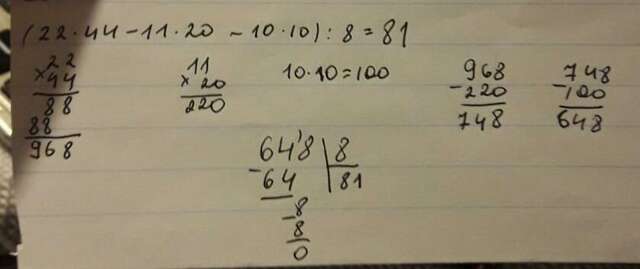 (22·44-11·20-10·10):8=81
22
×44
88
88
968
11
×20
220
10·10=100
968
-220
748
748
-100
648
648 8
-64 81
8
-8
0